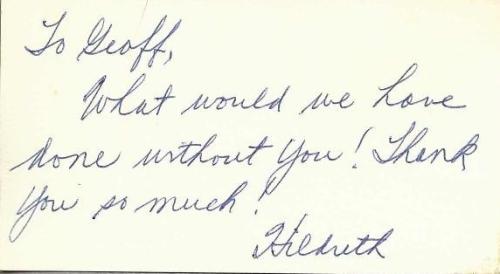 To Geoff,
What would we have
done without You! Thank
You so much!
Hildreth